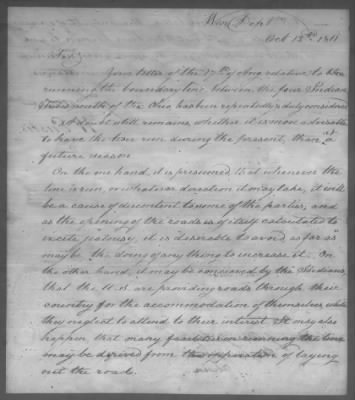 War Dept
Oct 12th 1811
Sir
Your letter of the 17th of Aug. relative to the
running the boundary line between the four Indian
Tribes south of the Ohio has been repeatedly & duly considered
& a doubt still remains whether it is more adviseable
to have the line run during the present, than at a
future season
On the one hand, it is presumed that whenever the
line is run, or whatever direction it may take, it will
be a cause of discontent to some of the parties, and
as the opening of the roads is of itself calculated to
excite jealousy, it is desirable to avoid as far as
may be the doing of any thing to increase it. On
the other hand, it may be conceived by the Indians,
that the U.S. are providing roads through their
country for the accommodation of themselves while
they neglect to attend to their interest. It may also
happen that many facilities in running the line
may be derived from the operation of laying
out the roads.